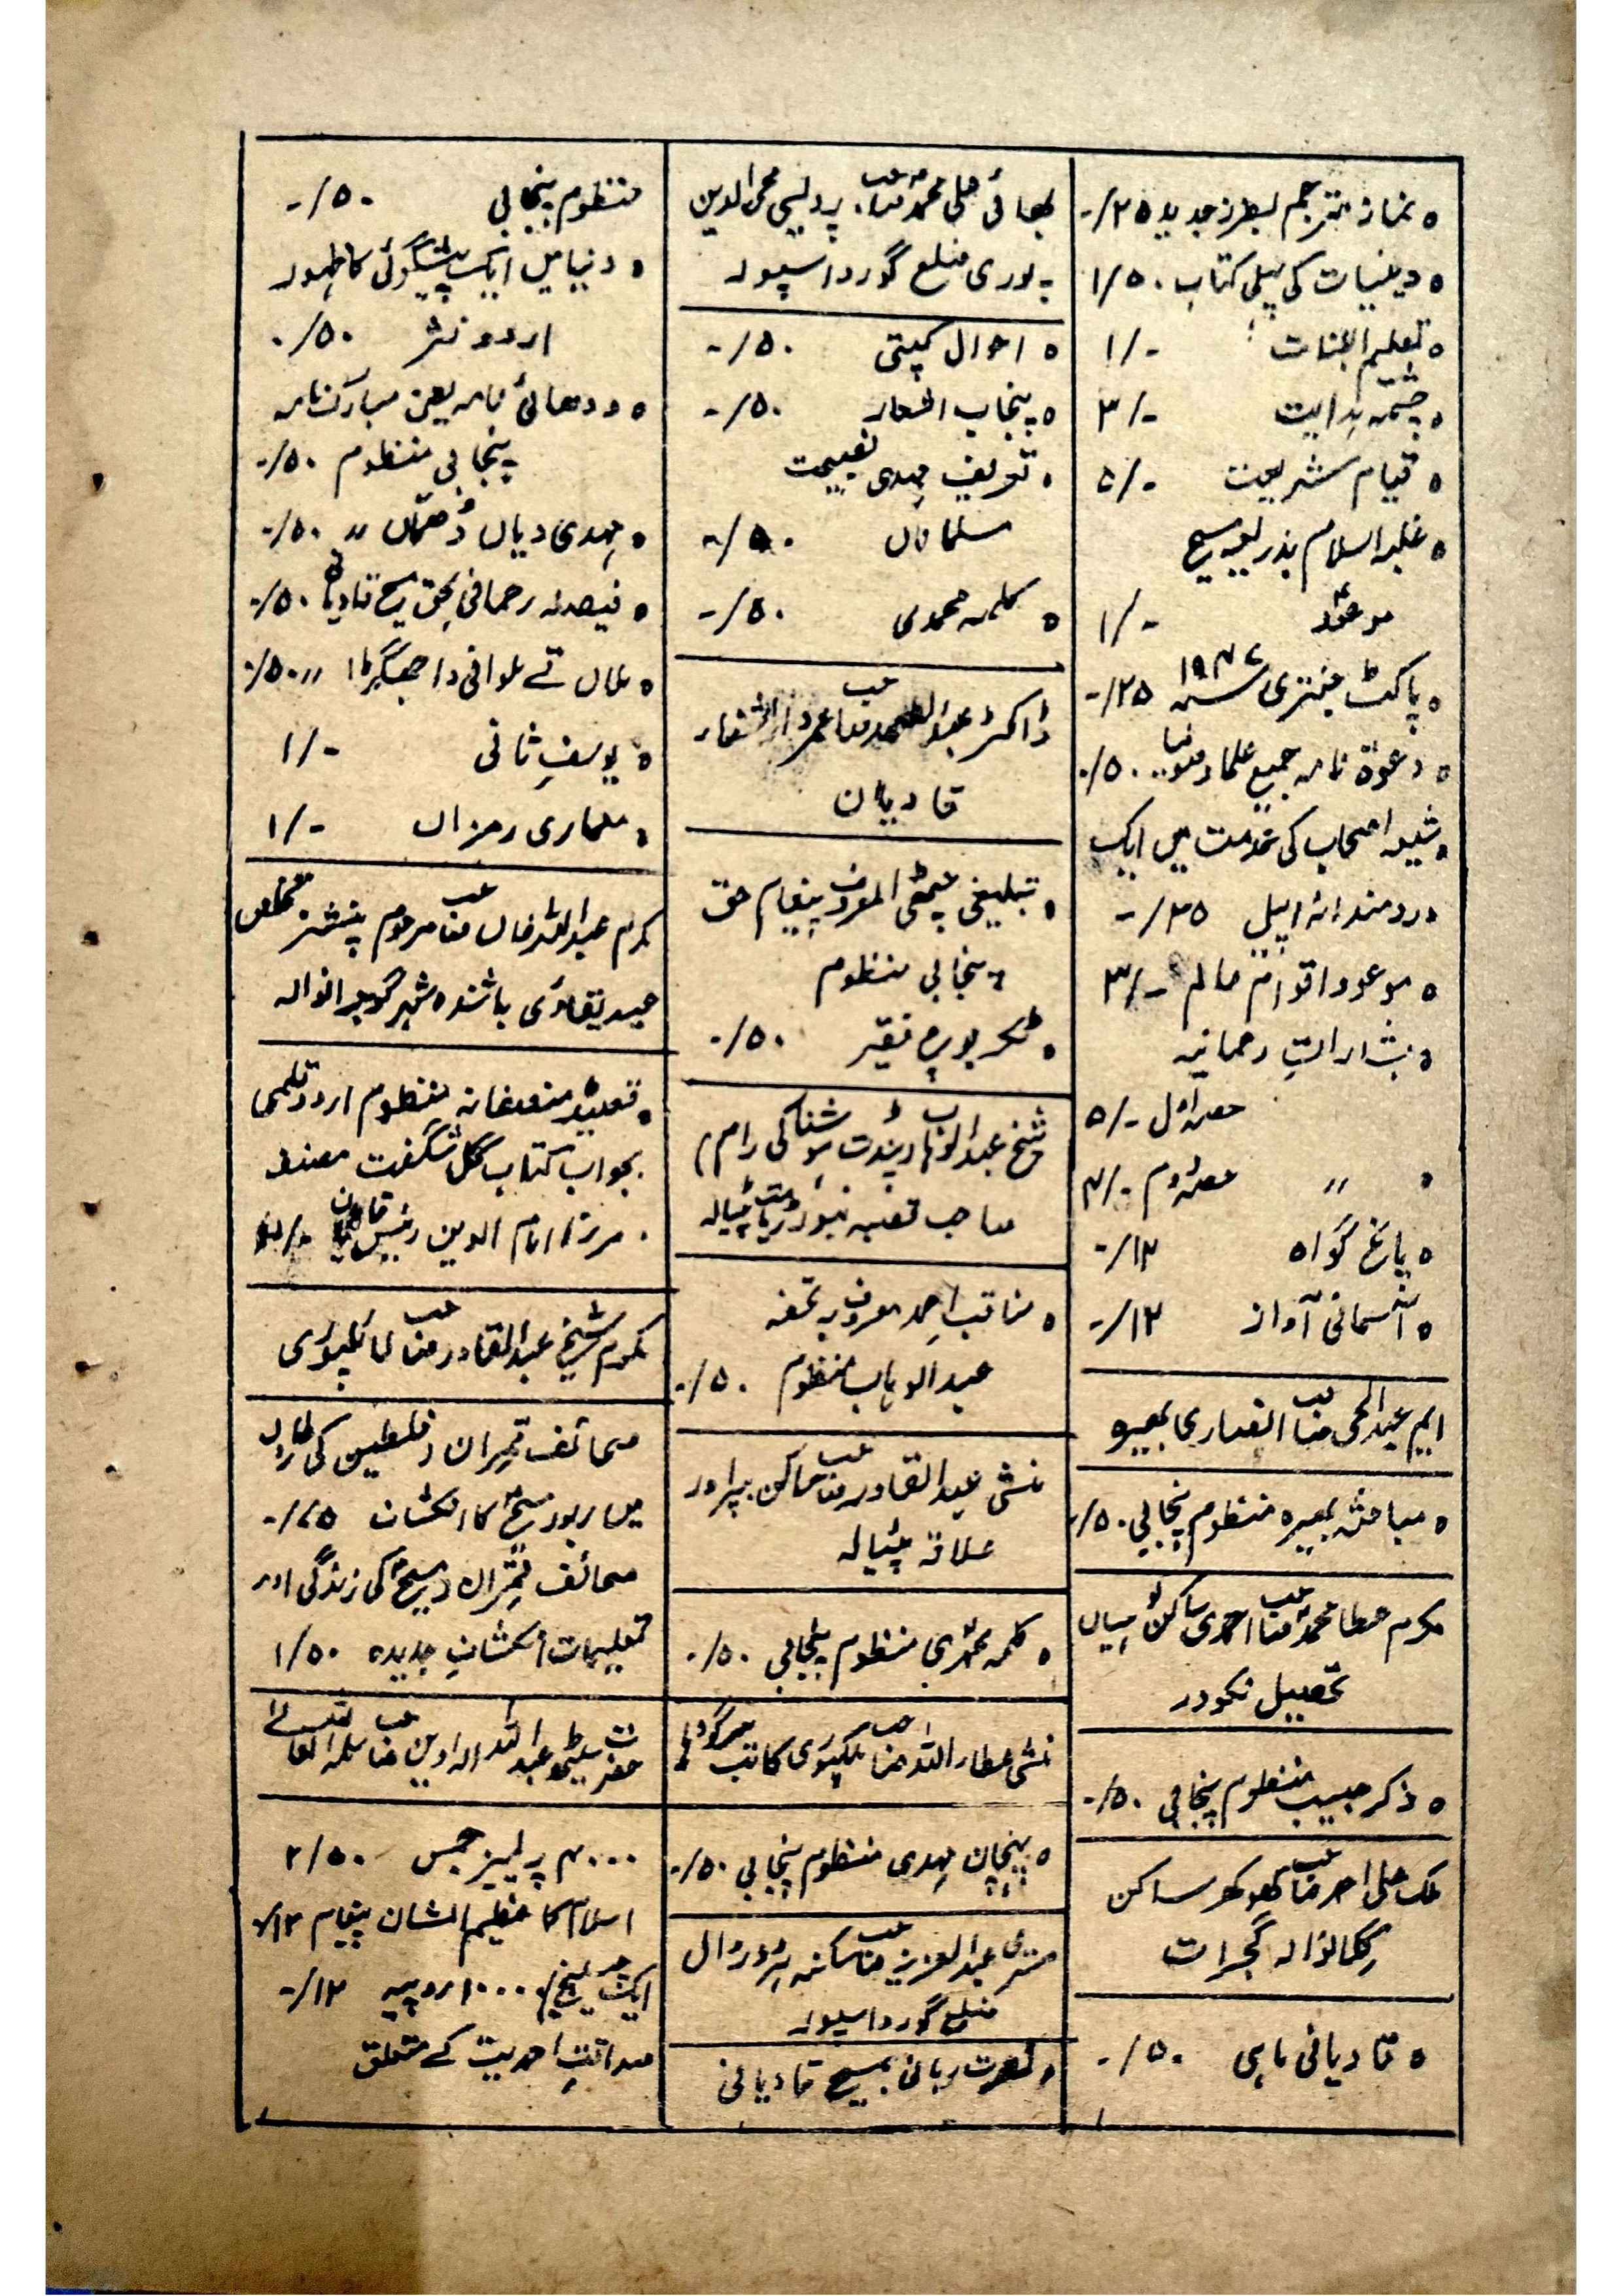 نماز مترجم بطرز جدید ۲۵/-
دینیات کی پہلی کتاب ۱/۵۰
تعلیم البنات ۱/-
چشمہ ہدایت ۳/-
قیام شریعت ۵/-
غلبہ اسلام بذریعہ مسیح
موعودؑ ۱/-
پاکٹ جنتری ۲۵/-
دعوۃ نامہ جمیع علماء ۵۰/-
شیعہ اصحاب کی خدمت میں ایک
دردمندانہ اپیل ۲۵/-
موعود اقوام عالم ۳/-
بشاراتِ رحمانیہ
حصہ اول ۵/-
〃 حصہ دوم ۴/-
پانچ گواہ ۱۲/-
آسمانی آواز ۱۲/-
ایم عبدالحی صاحب انصاری بھیرہ
مباحثہ بھیرہ منظوم پنجابی ۵۰/-
مکرم عطا محمد صاحب احمدی ساکن میاں
تحصیل نکودر
ذکر حبیب منظوم پنجابی ۵۰/-
ملک علی احمد صاحب کھوکھر ساکن
گجرات
قادیانی ماہی ۵۰/-
بھائی علی محمد صاحب پردیسی محی الدین
پوری ضلع گورداسپور
احوال کپتی ۵۰/-
پنجاب اشعار ۵۰/-
تعریف مہدی نصیحت
مسلماناں ۵۰/-
کلمہ محمدی ۵۰/-
ڈاکٹر
قادیان
تبلیغی چٹھی المعروف پیغام حق
پنجابی منظوم
فقیر ۵۰/-
شیخ عبدالوہاب
صاحب قصبہ پٹیالہ
مناقب احمد معروف بہ تحفہ
عبدالوہاب منظوم ۵۰/-
منشی عبدالقادر صاحب ساکن
علاقہ پٹیالہ
کلمہ منظوم پنجابی ۵۰/-
منشی عطاء اللہ صاحب کاتب سرگودھا
پہچان مہدی منظوم پنجابی ۵۰/-
مستری عبدالعزیز صاحب سکنہ
ضلع گورداسپور
نصرت ربانی بمسیح قادیانی
منظوم پنجابی ۵۰/-
دنیا میں ایک پیشگوئی کا ظہور
اردو نثر ۵۰/۰
ودھائی نامہ یعنی مبارکنامہ
پنجابی منظوم ۵۰/-
مہدی دیاں دُھمّاں 〃 ۵۰/-
فیصلہ رحمانی بحق مسیح قادیانی ۵۰/-
〃 ۵۰/-
یوسفِ ثانی ۱/-
ملہاری رمزاں ۱/-
مکرم عبداللہ خاں صاحب مرحوم پنشنر مخلص
باشندہ شہر گوجرانوالہ
منظوم اردو قلمی
بجواب کتاب گل شگفت مصنفہ
مرزا امام الدین رئیس قادیان
مکرم شیخ عبدالقادر صاحب لائلپوری
صحائف قمران
میں ربود مسیح کا انکشاف ۷۵/-
صحائف قمران و مسیح کی زندگی اور
تعلیمات انکشافِ جدیدہ ۱/۵۰
حضرت سیٹھ عبداللہ الہ دین صاحب سلمہ اللہ تعالیٰ
۴۰۰۰ پریمیز جمس ۲/۵۰
اسلام کا عظیم الشان پیغام ۱۲/-
ایک چیلنج ۱۰۰۰۰ روپیہ ۱۲/-
صداقتِ احمدیت کے متعلق